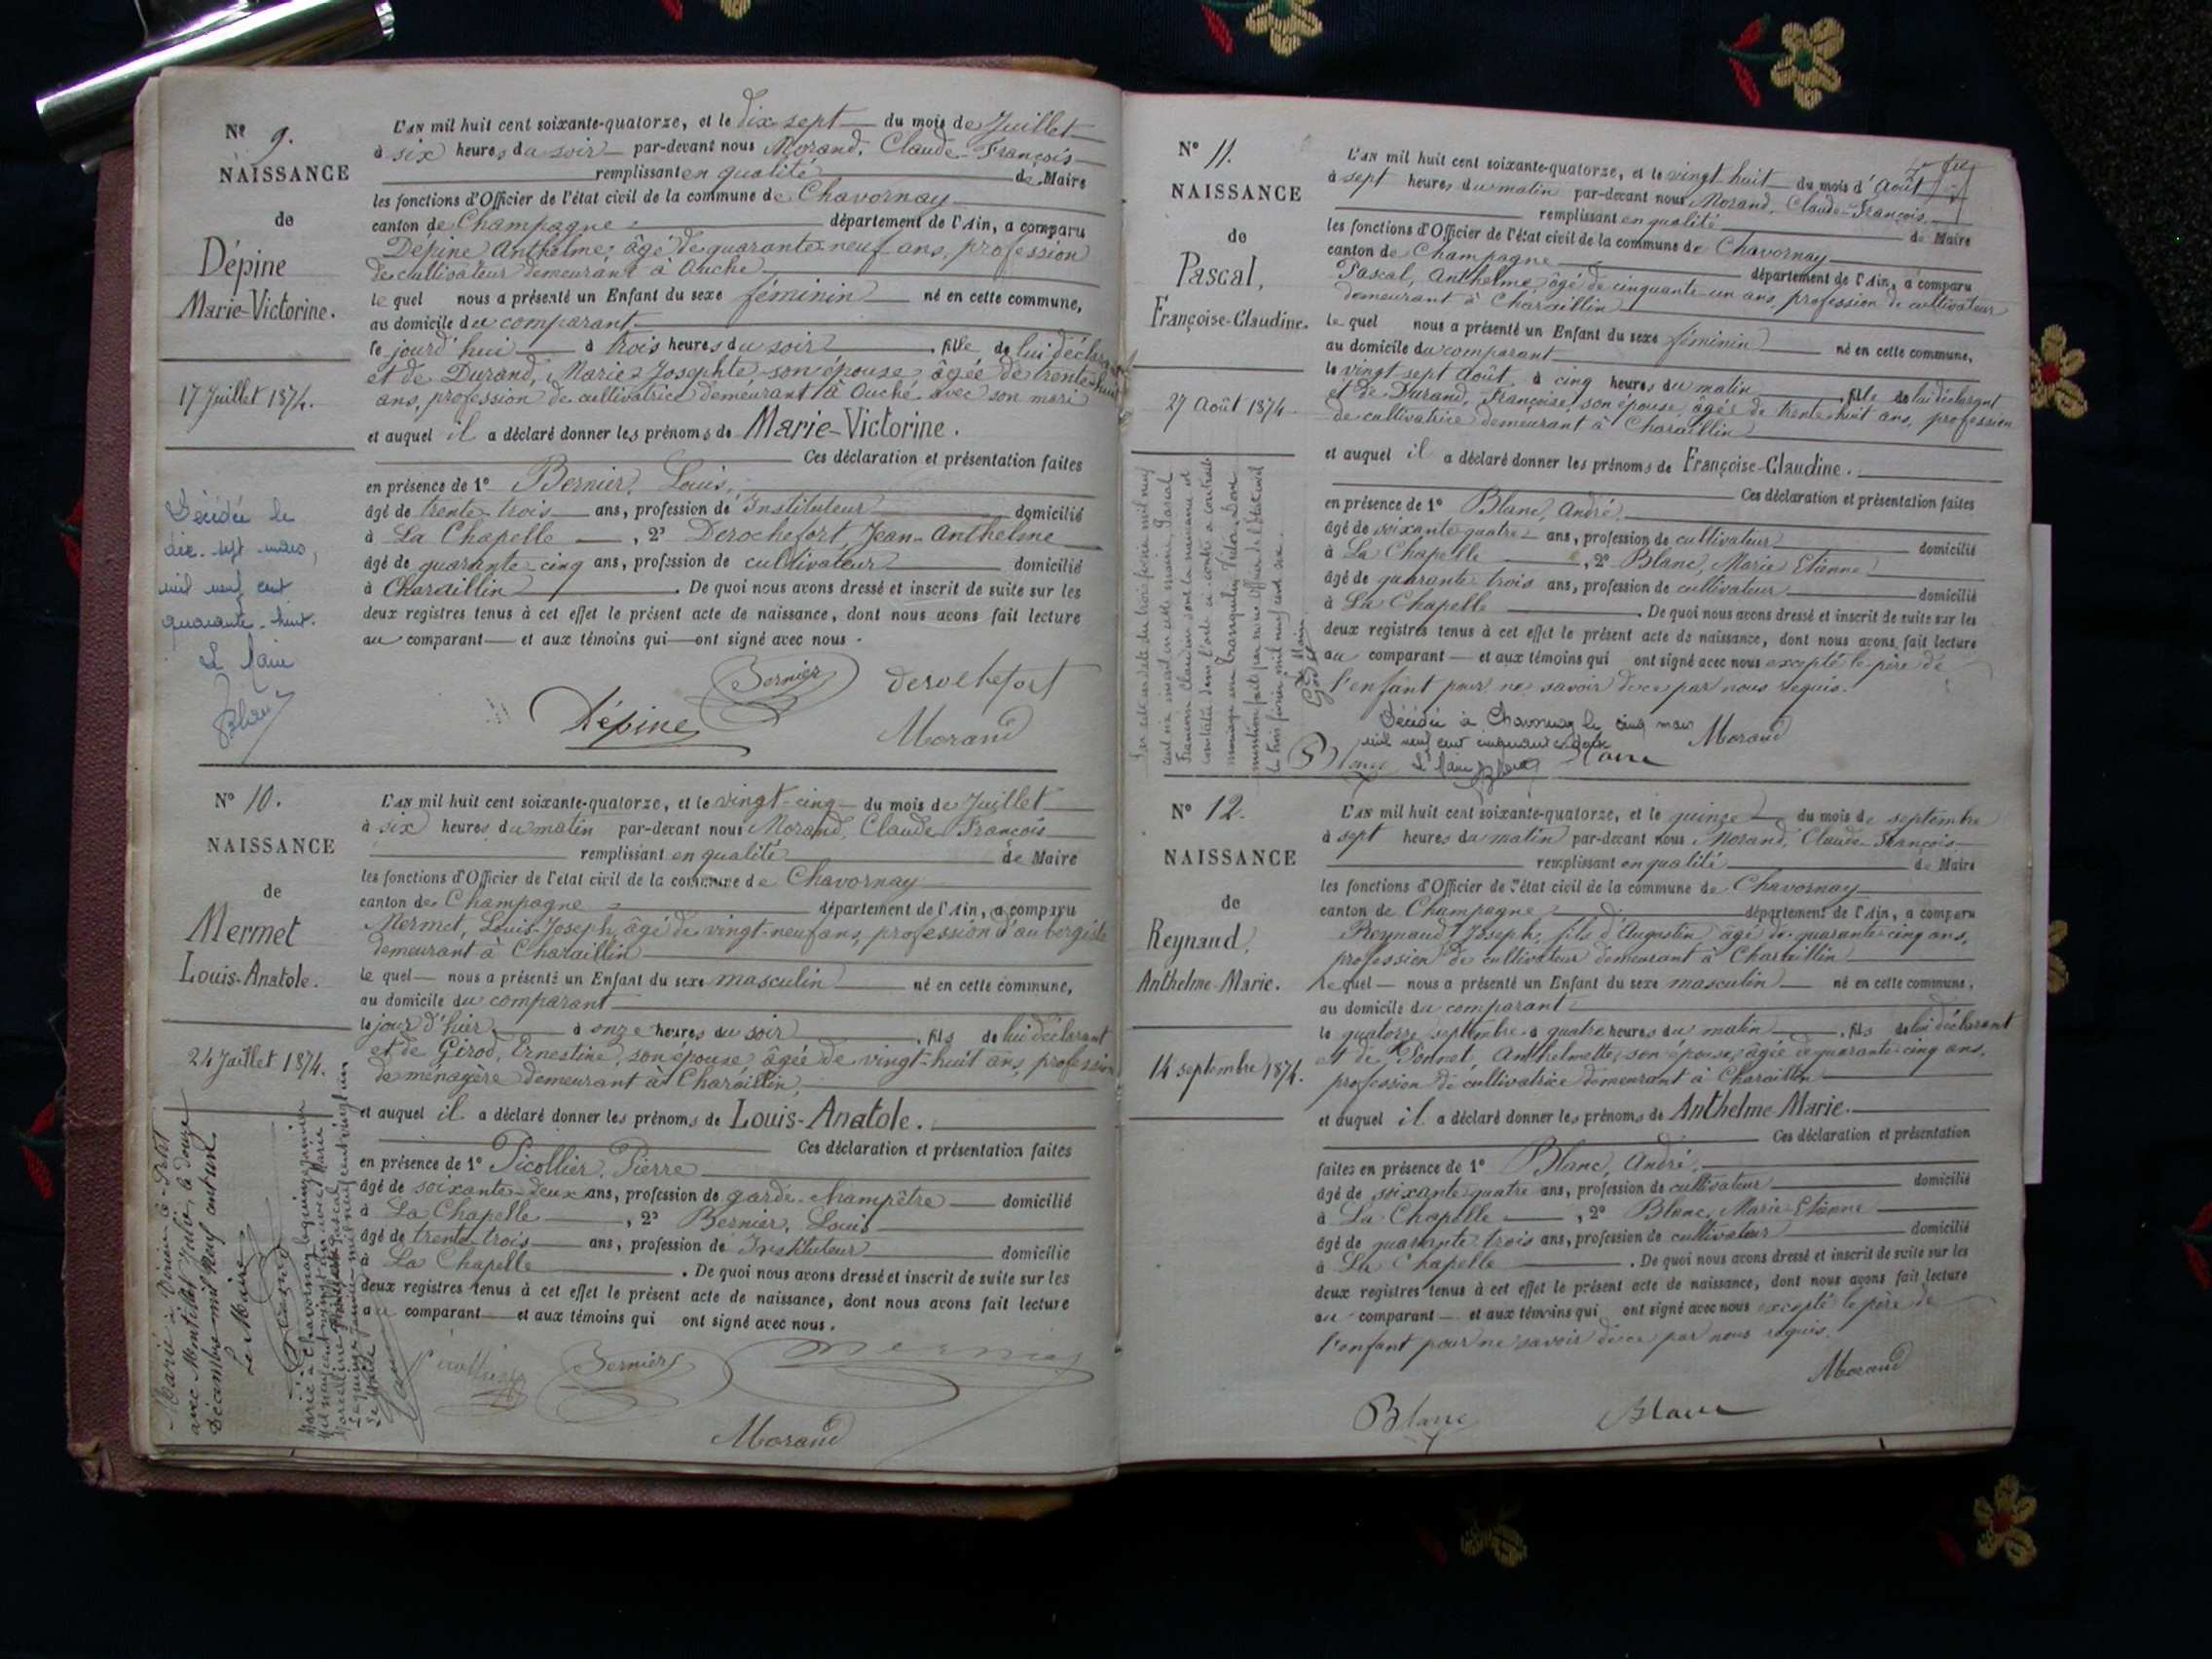 N° 9.
NAISSANCE
de
Dépine
Marie-Victorine.
17 Juillet 1874.
Décédée le
dix-sept mars,
mil neuf cent
quarante-huit.
Le Maire
L'AN mil huit cent soixante-quatorze, et le dix sept du mois de Juillet
à six heures du soir par-devant nous Morand, Claude-François
remplissant en qualité de Maire
les fonctions d'Officier de l'état civil de la commune de Chavornay
canton de Champagne département de l'Ain, a comparu
Dépine Anthelme, âgé de quarante-neuf ans, profession
de cultivateur demeurant à Ouche
le quel nous a présenté un Enfant du sexe féminin né en cette commune,
au domicile du comparant
le jourd'hui à trois heures du soir, fille de lui déclarant
et de Durand, Marie-Josephte son épouse âgée de trente-huit
ans, profession de cultivatrice demeurant à Ouche avec son mari
et auquel il a déclaré donner les prénoms de Marie-Victorine.
Ces déclaration et présentation faites
en présence de 1° Bernier, Louis,
âgé de trente-trois ans, profession de Instituteur domicilié
à La Chapelle, 2° Derochefort, Jean-Anthelme
âgé de quarante-cinq ans, profession de cultivateur domicilié
à Charaillin. De quoi nous avons dressé et inscrit de suite sur les
deux registres tenus à cet effet le présent acte de naissance, dont nous avons fait lecture
au comparant et aux témoins qui ont signé avec nous.
Bernier derochefort
Dépine Morand
N° 10.
NAISSANCE
de
Mermet
Louis-Anatole.
24 Juillet 1874.
Marié à Virieu-le-Petit
avec Montillet Julie le douze
Décembre mil neuf cent un.
Le Maire
Marié à Chavornay le quinze janvier
mil neuf cent vingt un avec Marie
L'AN mil huit cent soixante-quatorze, et le vingt-cinq du mois de Juillet
à six heures du matin par-devant nous Morand, Claude François
remplissant en qualité de Maire
les fonctions d'Officier de l'état civil de la commune de Chavornay
canton de Champagne département de l'Ain, a comparu
Mermet, Louis-Joseph, âgé de vingt-neuf ans, profession d'aubergiste
demeurant à Charaillin
le quel nous a présenté un Enfant du sexe masculin né en cette commune,
au domicile du comparant
le jour d'hier à onze heures du soir, fils de lui déclarant
et de Girod, Ernestine, son épouse âgée de vingt-huit ans, profession
de ménagère demeurant à Charaillin
et auquel il a déclaré donner les prénoms de Louis-Anatole.
Ces déclaration et présentation faites
en présence de 1° Picollier, Pierre
âgé de soixante-deux ans, profession de garde-champêtre domicilié
à La Chapelle, 2° Bernier, Louis
âgé de trente-trois ans, profession de Instituteur domicilié
à La Chapelle. De quoi nous avons dressé et inscrit de suite sur les
deux registres tenus à cet effet le présent acte de naissance, dont nous avons fait lecture
au comparant et aux témoins qui ont signé avec nous.
Bernier
Morand
N° 11.
NAISSANCE
de
Pascal,
Françoise-Claudine.
27 Août 1874.
L'AN mil huit cent soixante-quatorze, et le vingt huit du mois d'Août
à sept heures du matin par-devant nous Morand, Claude-François,
remplissant en qualité de Maire
les fonctions d'Officier de l'état civil de la commune de Chavornay
canton de Champagne département de l'Ain, a comparu
Pascal, Anthelme, âgé de cinquante-un ans, profession de cultivateur
demeurant à Charaillin
le quel nous a présenté un Enfant du sexe féminin né en cette commune,
au domicile du comparant
le vingt sept Août à cinq heures du matin, fille de lui déclarant
et de Durand, Françoise, son épouse âgée de trente huit ans, profession
de cultivatrice demeurant à Charaillin
et auquel il a déclaré donner les prénoms de Françoise-Claudine.
Ces déclaration et présentation faites
en présence de 1° Blanc, André,
âgé de soixante quatre ans, profession de cultivateur domicilié
à La Chapelle, 2° Blanc, Marie Etienne
âgé de quarante trois ans, profession de cultivateur domicilié
à La Chapelle. De quoi nous avons dressé et inscrit de suite sur les
deux registres tenus à cet effet le présent acte de naissance, dont nous avons fait lecture
au comparant et aux témoins qui ont signé avec nous excepté le père de
l'enfant pour ne savoir de ce par nous requis.
Décédée à Chavornay le cinq mars
mil neuf cent cinquante
Le Maire
Morand
Blanc
N° 12.
NAISSANCE
de
Reynaud,
Anthelme-Marie.
14 septembre 1874.
L'AN mil huit cent soixante-quatorze, et le quinze du mois de septembre
à sept heures du matin par-devant nous Morand, Claude-François
remplissant en qualité de Maire
les fonctions d'Officier de l'état civil de la commune de Chavornay
canton de Champagne département de l'Ain, a comparu
Reynaud Joseph, fils d'Augustin âgé de quarante-cinq ans,
profession de cultivateur demeurant à Charaillin
le quel nous a présenté un Enfant du sexe masculin né en cette commune,
au domicile du comparant
le quatorze septembre à quatre heures du matin, fils de lui déclarant
et de Ponnet Anthelmette, son épouse, âgée de quarante-cinq ans,
profession de cultivatrice demeurant à Charaillin
et auquel il a déclaré donner les prénoms de Anthelme-Marie.
Ces déclaration et présentation
faites en présence de 1° Blanc, André,
âgé de soixante quatre ans, profession de cultivateur domicilié
à La Chapelle, 2° Blanc, Marie-Etienne
âgé de quarante trois ans, profession de cultivateur domicilié
à La Chapelle. De quoi nous avons dressé et inscrit de suite sur les
deux registres tenus à cet effet le présent acte de naissance, dont nous avons fait lecture
au comparant et aux témoins qui ont signé avec nous excepté le père de
l'enfant pour ne savoir de ce par nous requis.
Morand
Blanc Blanc